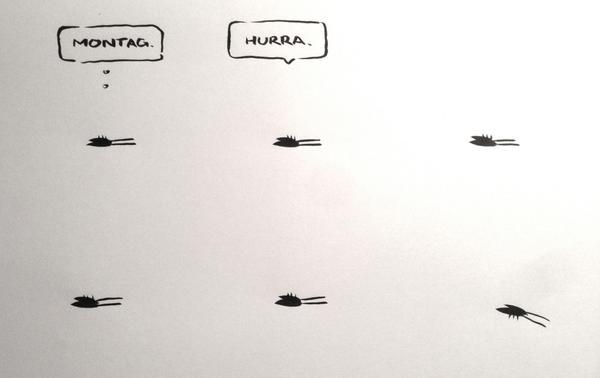 MONTAG.
HURRA.